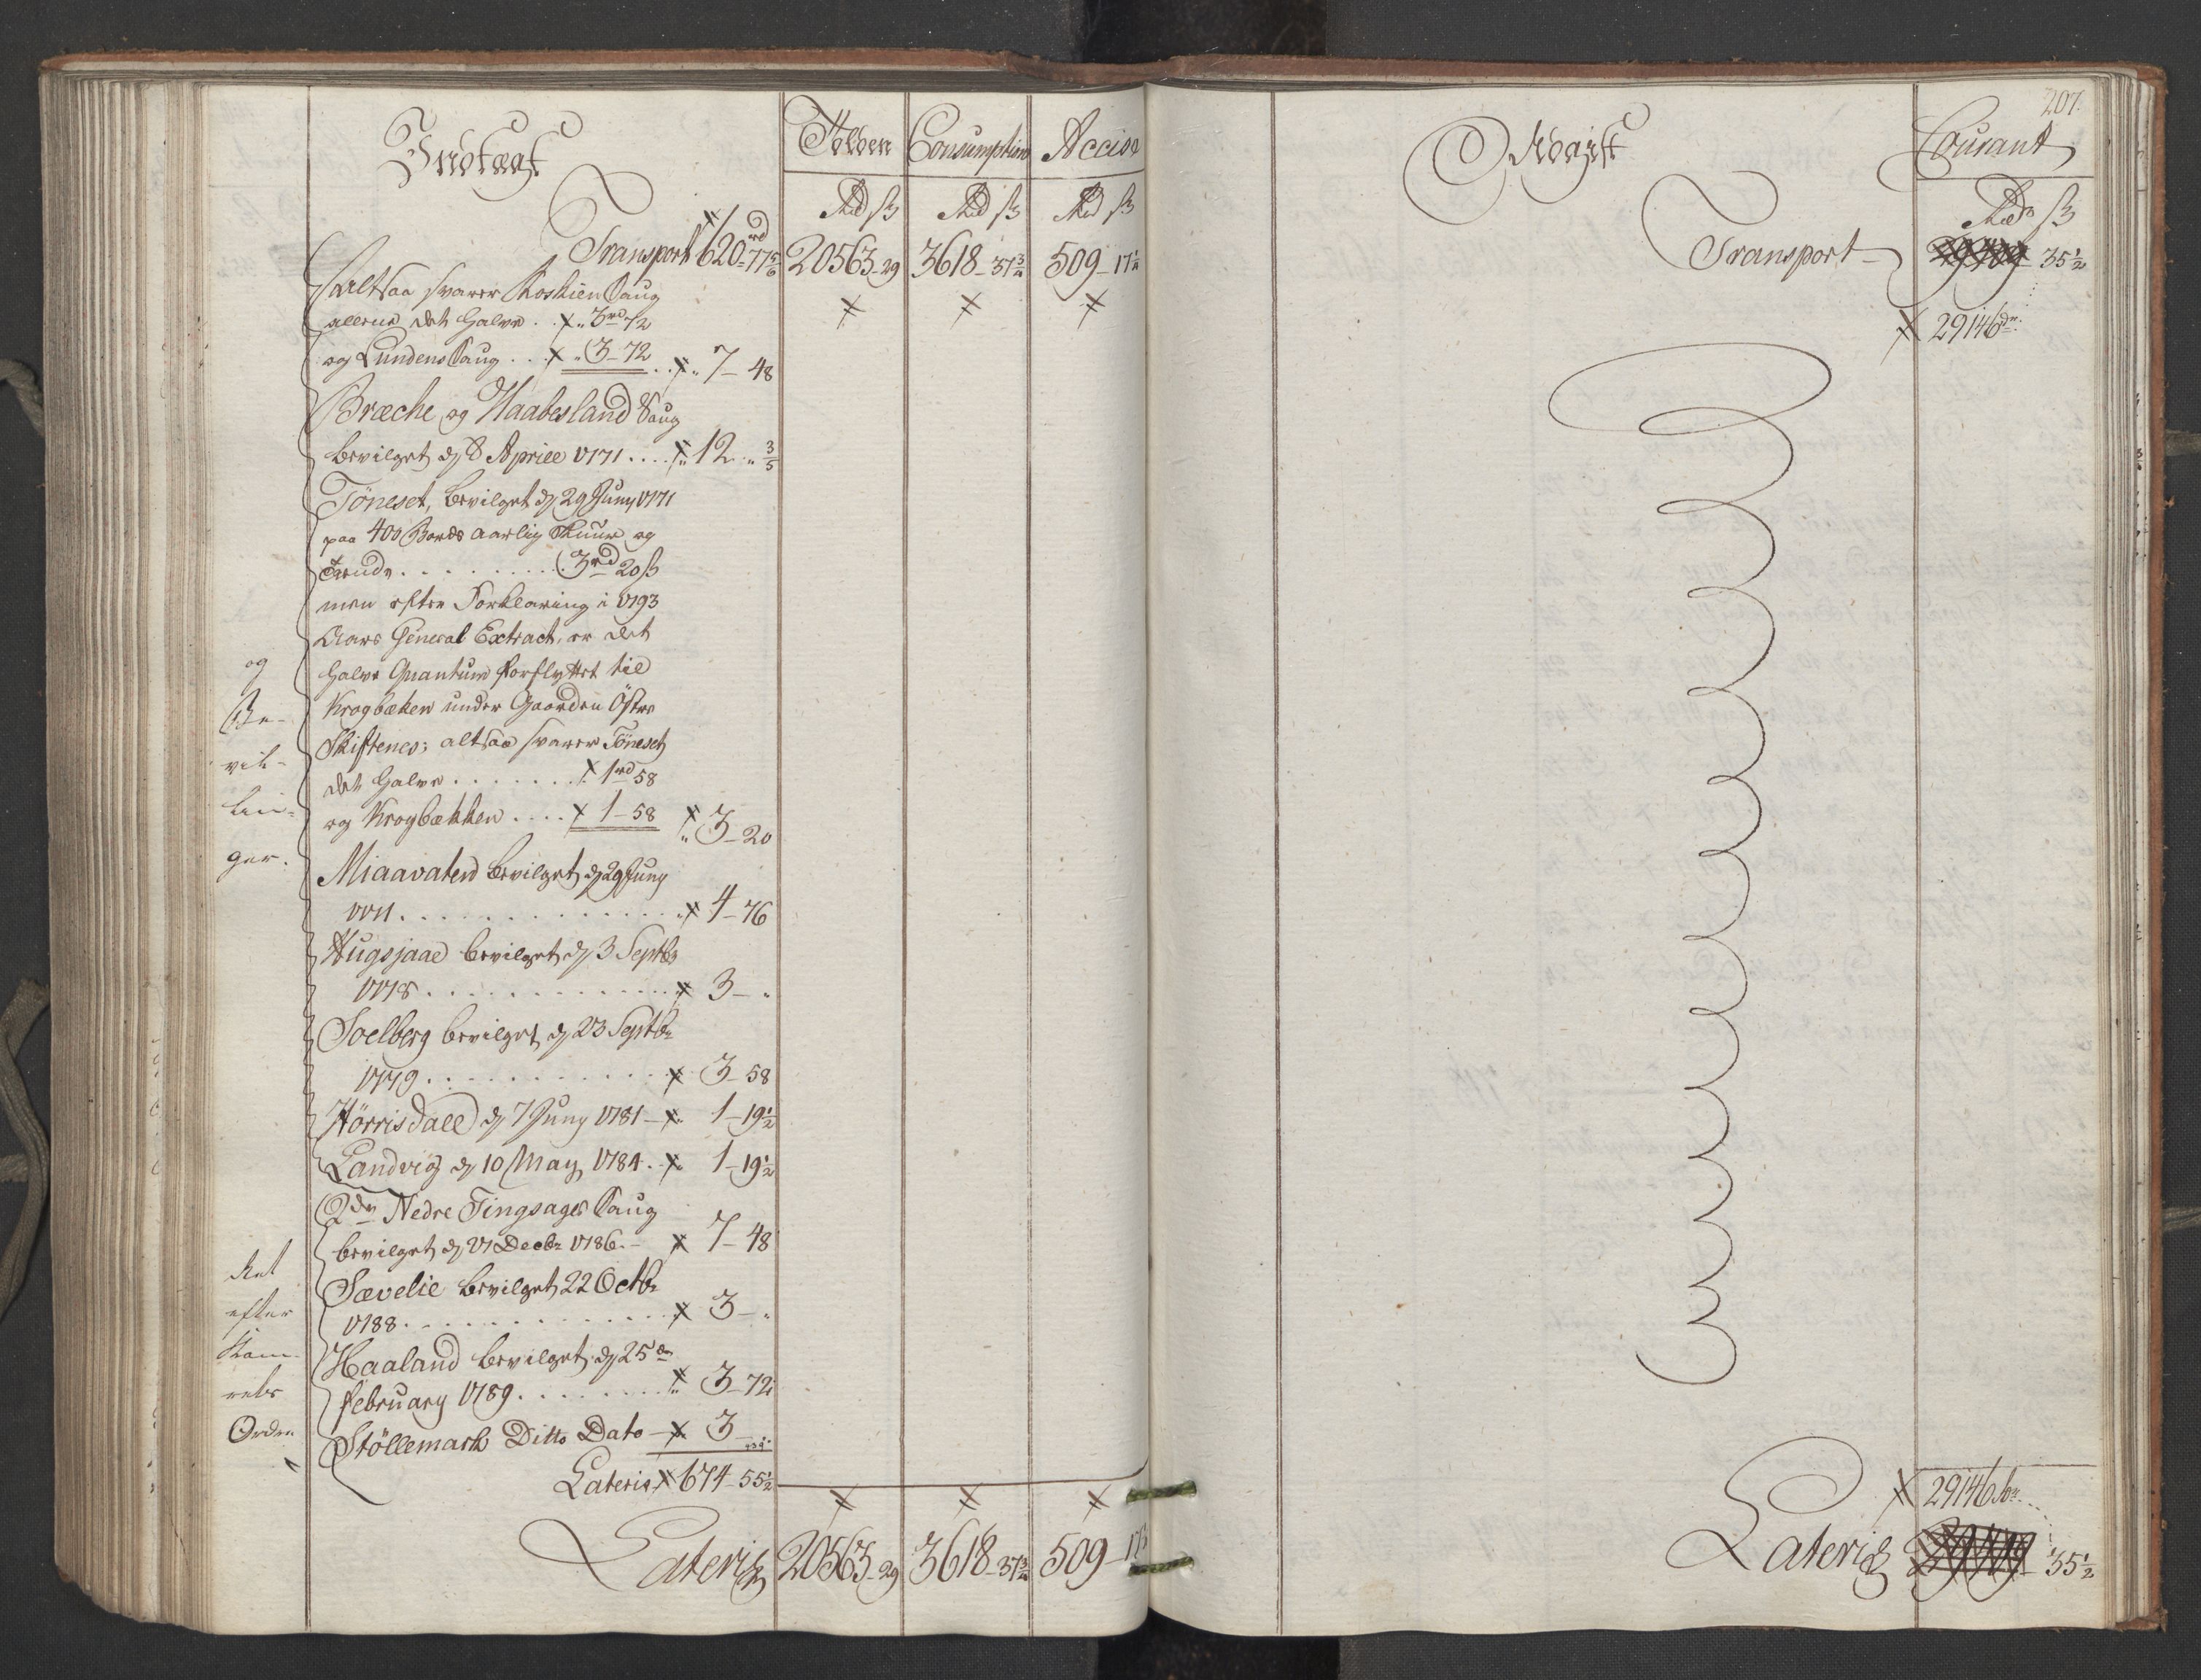 Indtægt
Tolden
Consumption
Accise
Rd ß
Rd ß
Rd ß
Transport 620 rd 77 5/6
20563 - 29
3618 - 37 3/4
509 - 17 1/4
altsaa svarer Koskien Saug
allene det halve . . 3 rd 72
og Lundens Saug . . . 3 - 72 . . 7 - 48
Bræche og Haabesland Saug
bevilget d 8 Aprill 1771 . . . . 12 " 3/5
Töneset, bevilget d 29 Juny 1771
paa 400 Bords aarlig Skuur og
. . . . . . . . 3 rd 20 ß
men efter Forklaring i 1793
Aars General Extract, er det
halve Quantum forflyttet til
Krogbæken under Gaarden Östre
Skiftenes; altsaa svarer Töneset
det halve . . . . . . . 1 rd 58
og Krogbækken . . . . 1 - 58 " 3 - 20
Miaavaten bevilget d 29 Juny
1771 . . . . . . . . . . . . . 4 - 76
Hugsjaae bevilget d 3 Septbr
1778 . . . . . . . . . . . . 3 - "
Soelberg bevilget d 23 Septbr
1779 . . . . . . . . . . . 3 - 58
Hörrisdall d 7 Juny 1781 - 1 - 19 1/2
Landvig d 10 May 1784 . 1 - 19 1/2
2de Nedre Tingsages Saug
bevilget d 27 Decbr 1786 . - 7 - 48
Sævelie bevilget 22 Octbr
1788 . . . . . . . . . . . . 3 - "
Haaland bevilget d 25de
February 1789 . . . . . . . . 3 - 72
Stöllemark Ditto Dato - 3 -
Lateris 674 - 55 1/2
Lateris 20563 - 29
3618 - 37 3/4
509 - 17
og
Be-
vil-
lin-
ger.
efter
Kam-
rets
Ordre
207.
Udgift
Courant
Rdr ß
Transport - 29109 35 1/2
29146
29146
Lateris 29109 - 35 1/2